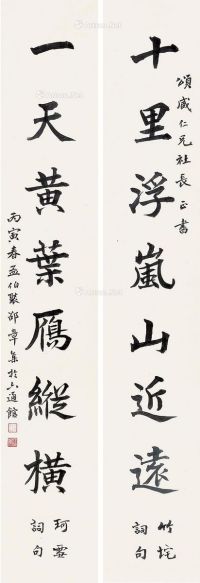 十里浮嵐山近遠
頌威仁兄社長正書
竹垞詞句
一天黃葉雁縱橫
珂雪詞句
丙寅春孟伯褧邵章集於六通館